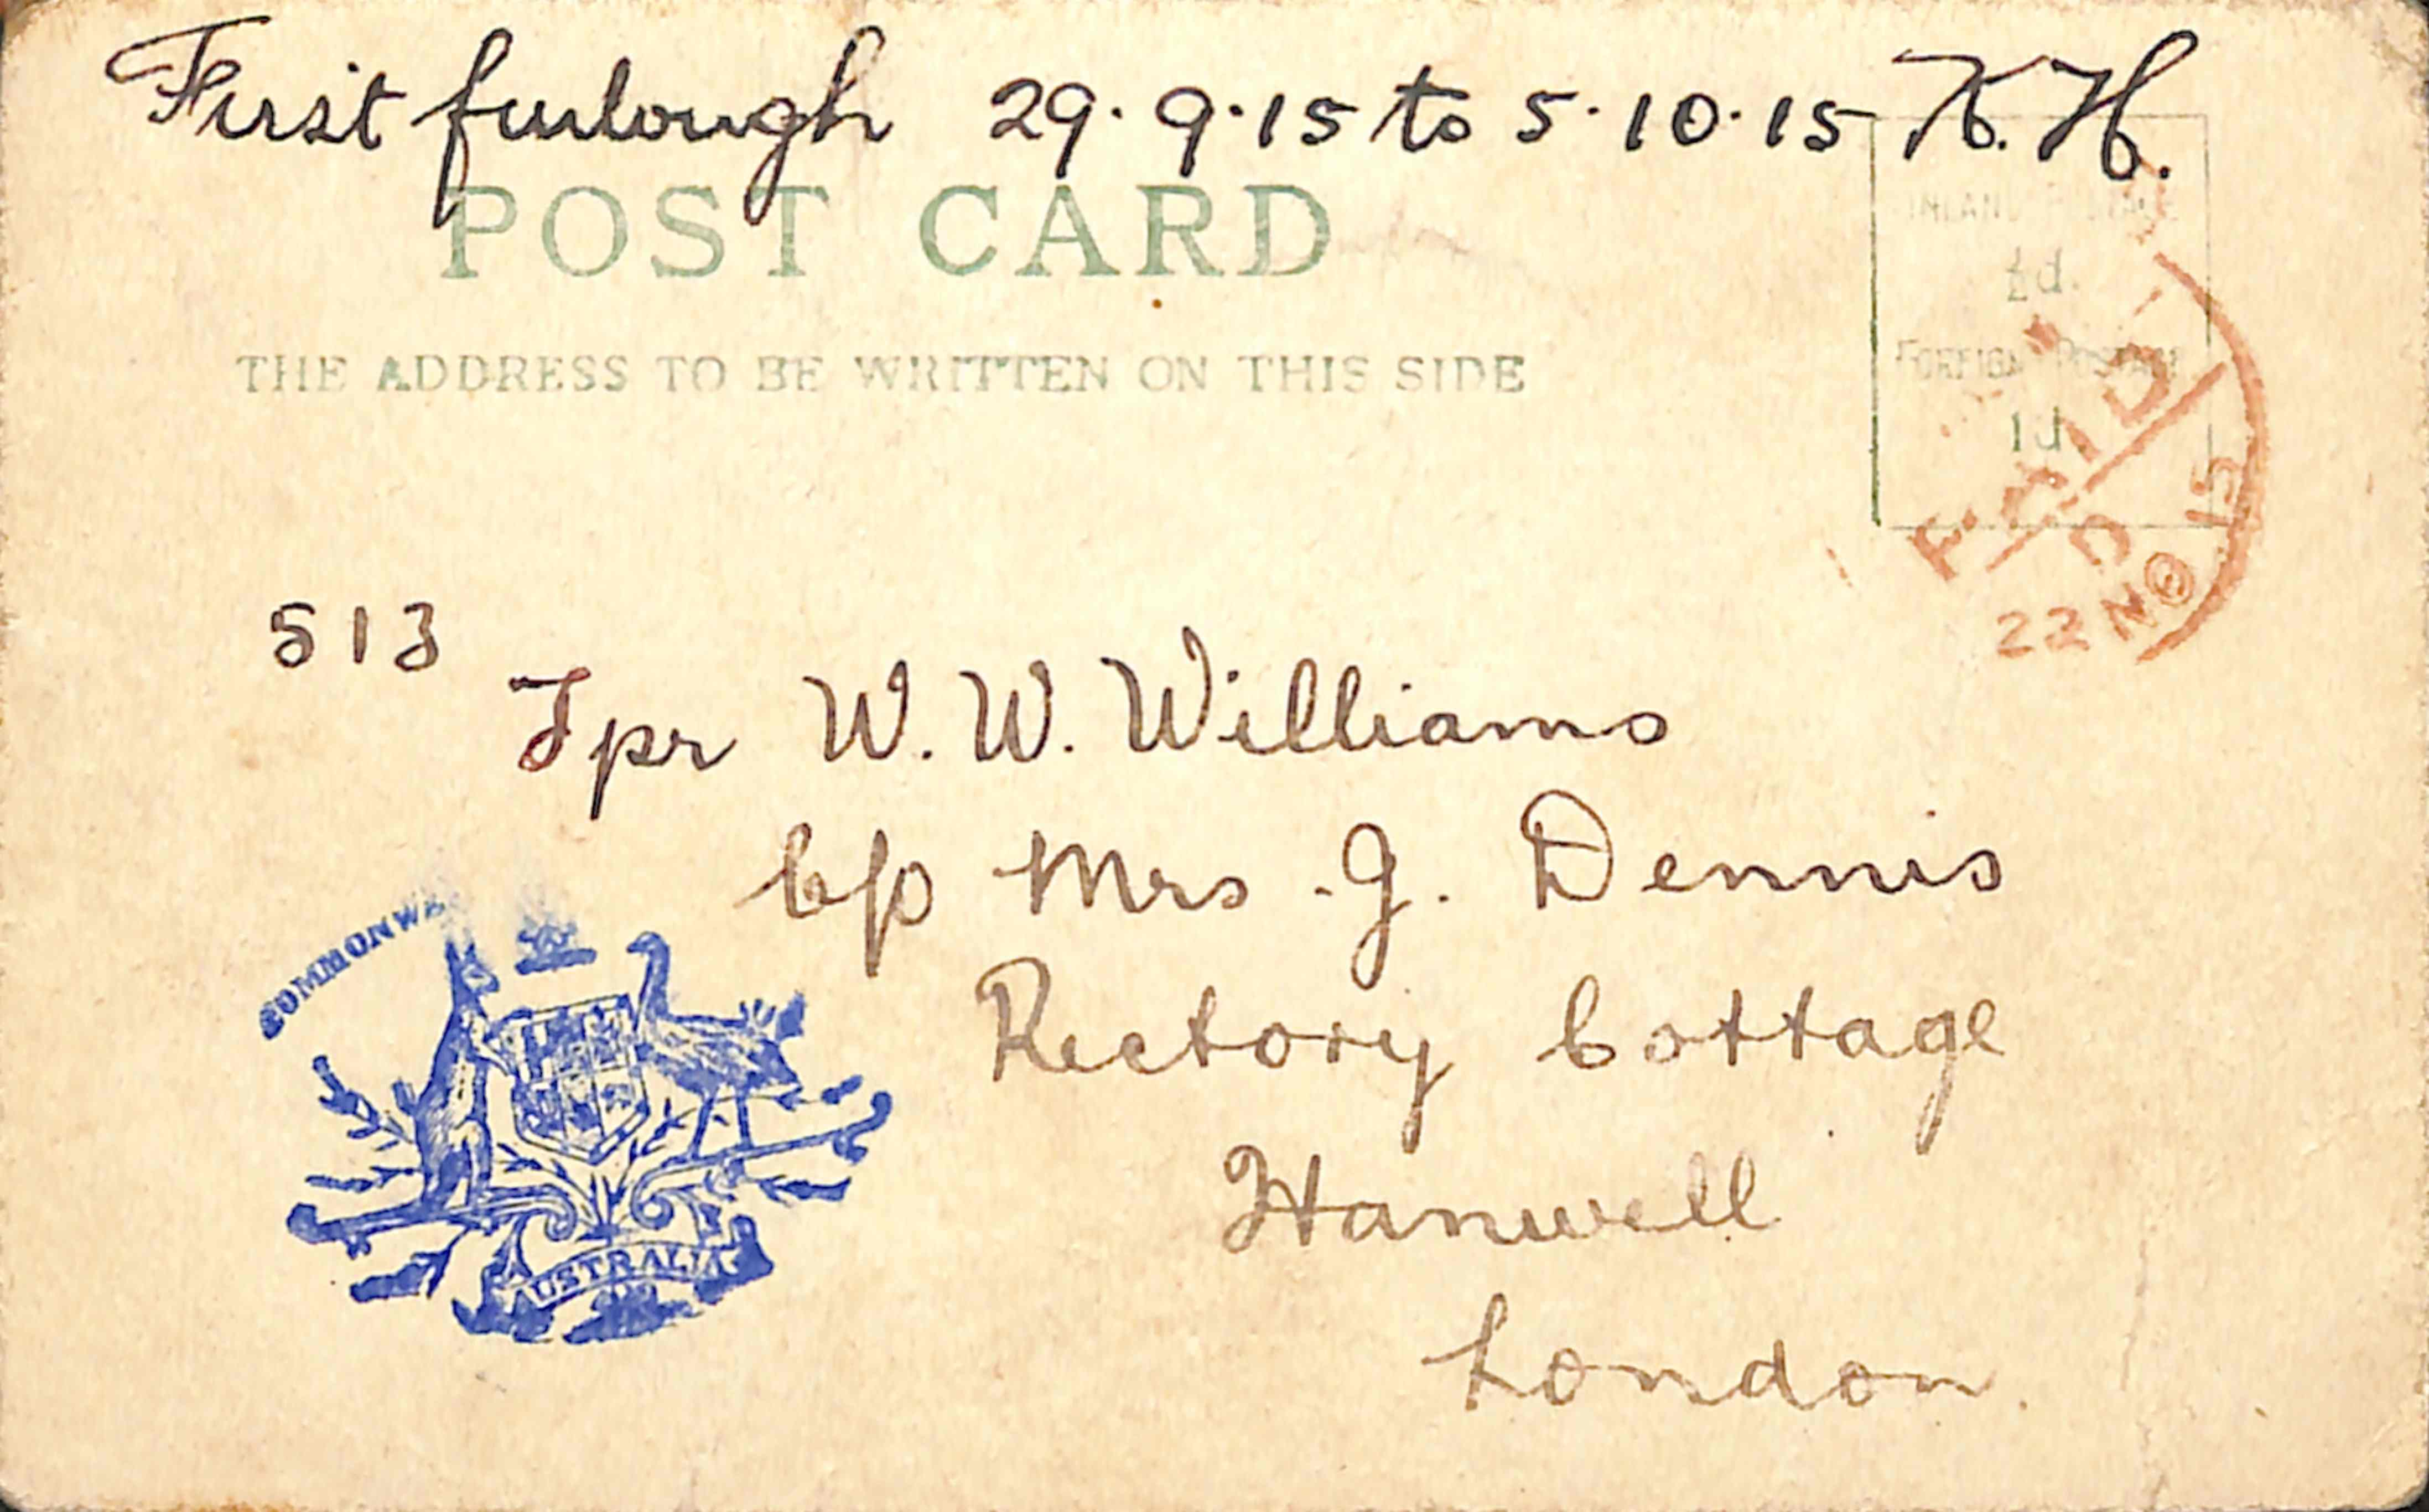 First furlough 29.9.15 to 5.10.15 K.H.
POST CARD
THE ADDRESS TO BE WRITTEN ON THIS SIDE
INLAND POSTAGE
½d.
FOREIGN POSTAGE
1d.
PAID
D
22 NO 15
513
Tpr W. W. Williams
C/o Mrs. J. Dennis
Rectory Cottage
Hanwell
London.
COMMONWE
AUSTRALIA